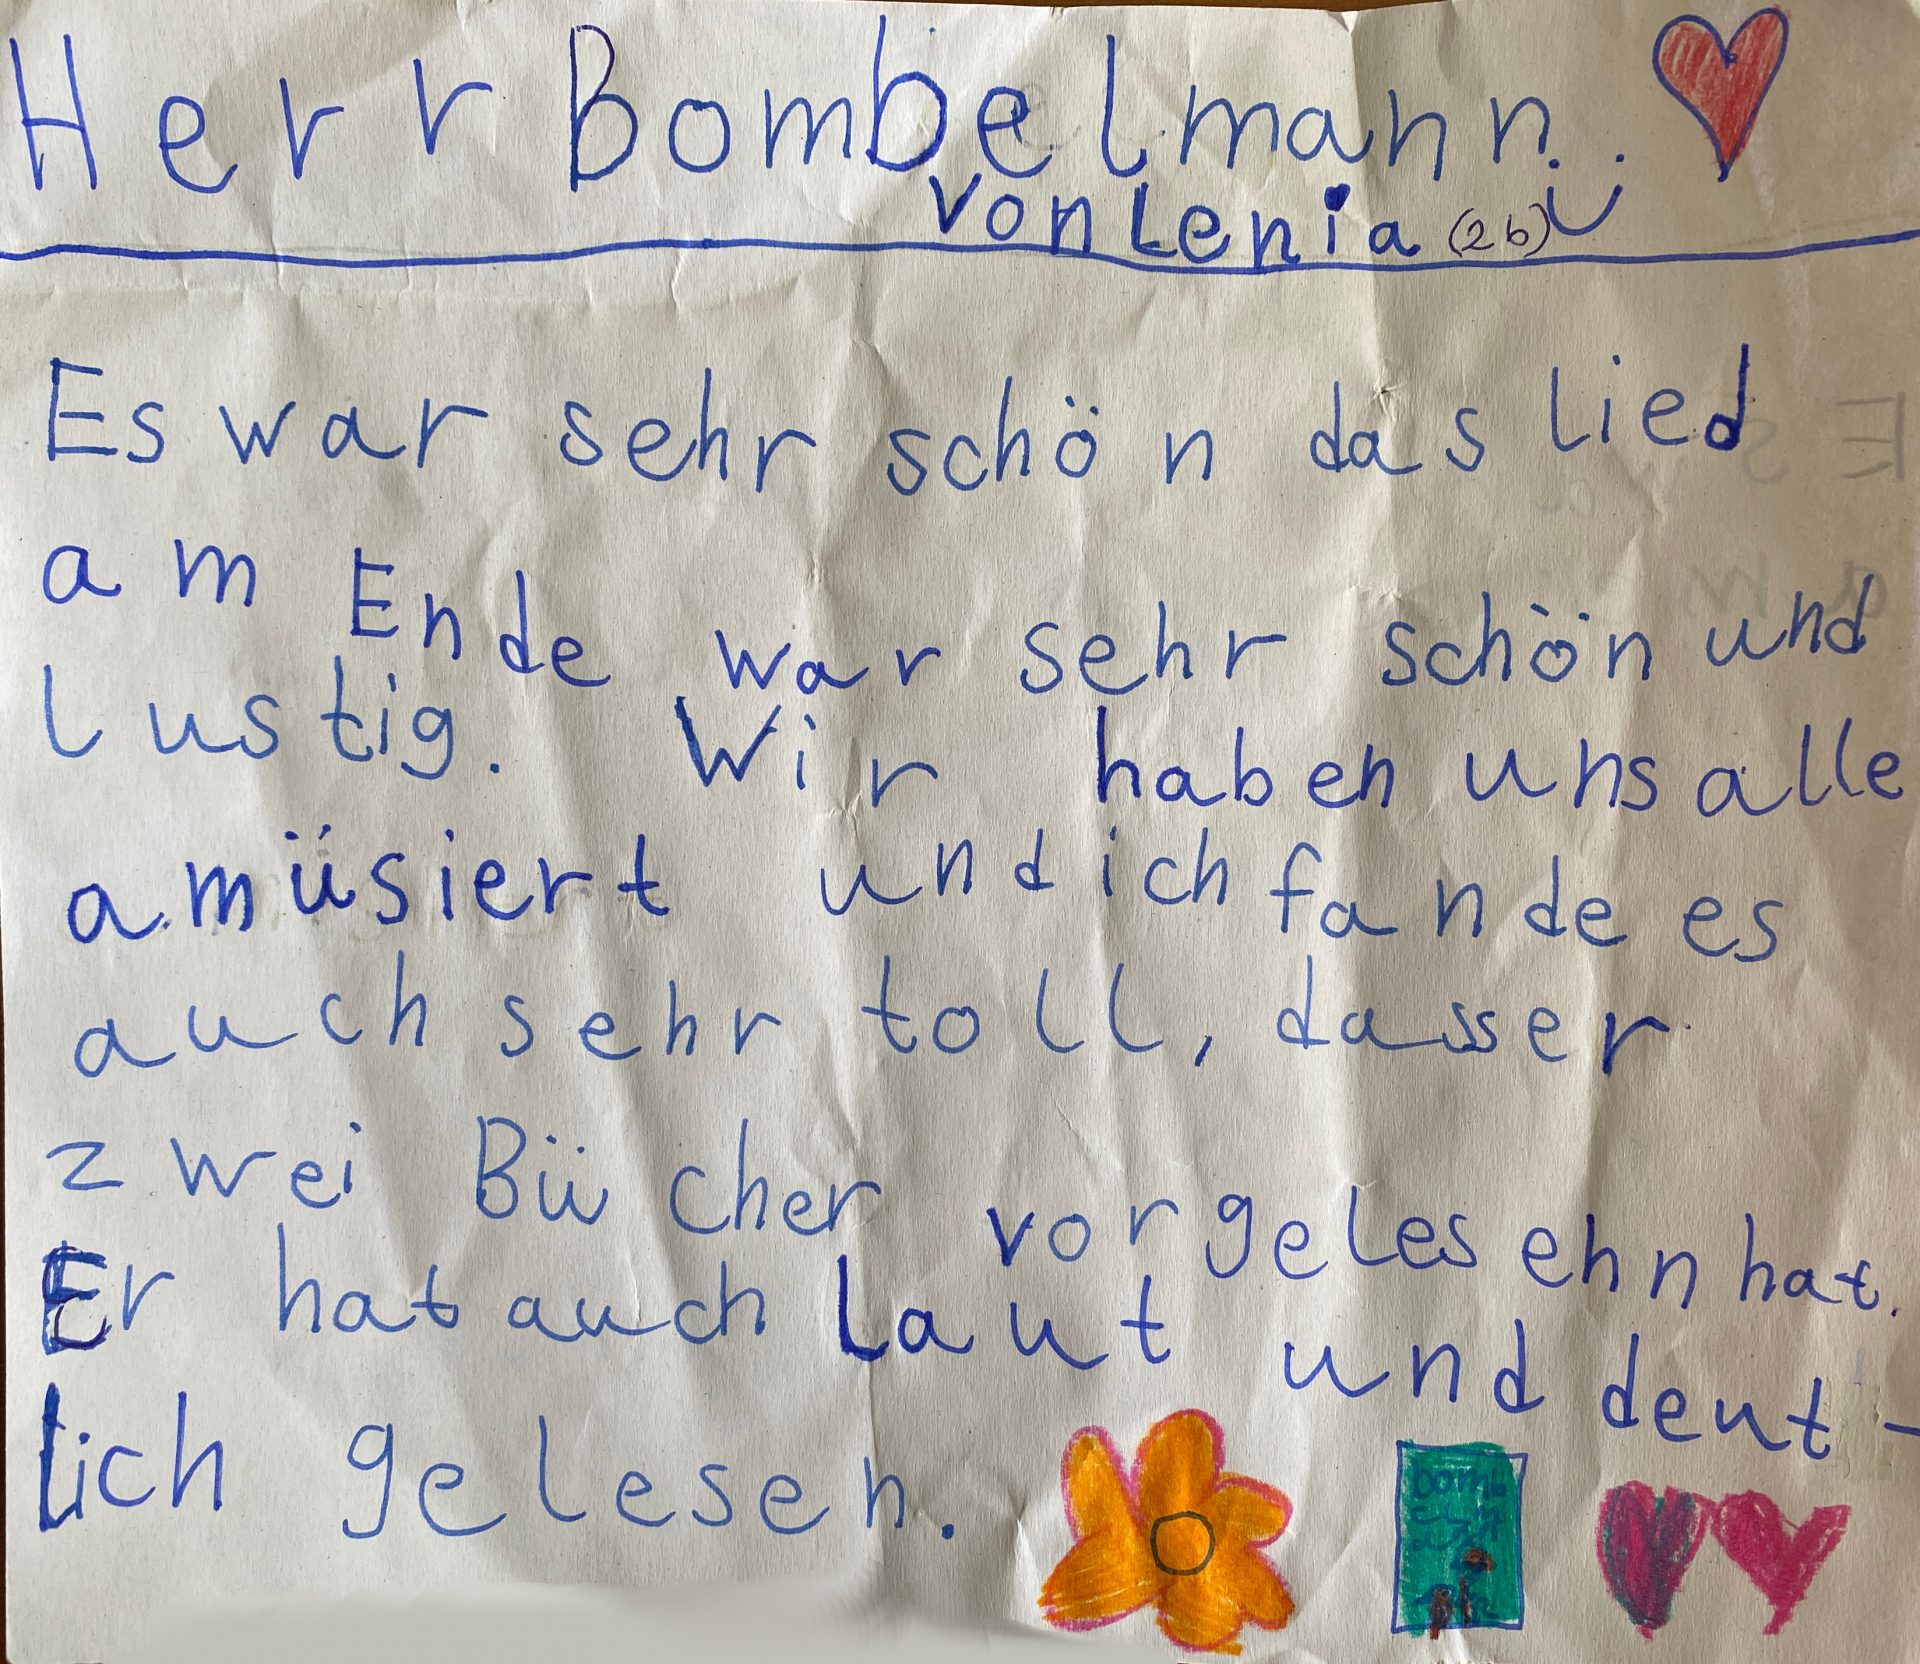 Herr Bombelmann.
von Lenia (2b)
Es war sehr schön das lied
am Ende war sehr schön und
lustig. Wir haben uns alle
amüsiert und ich fande es
auch sehr toll, dass er
zwei Bücher vorgelesehn hat.
Er hat auch Laut und deut-
lich gelesen.
bomb